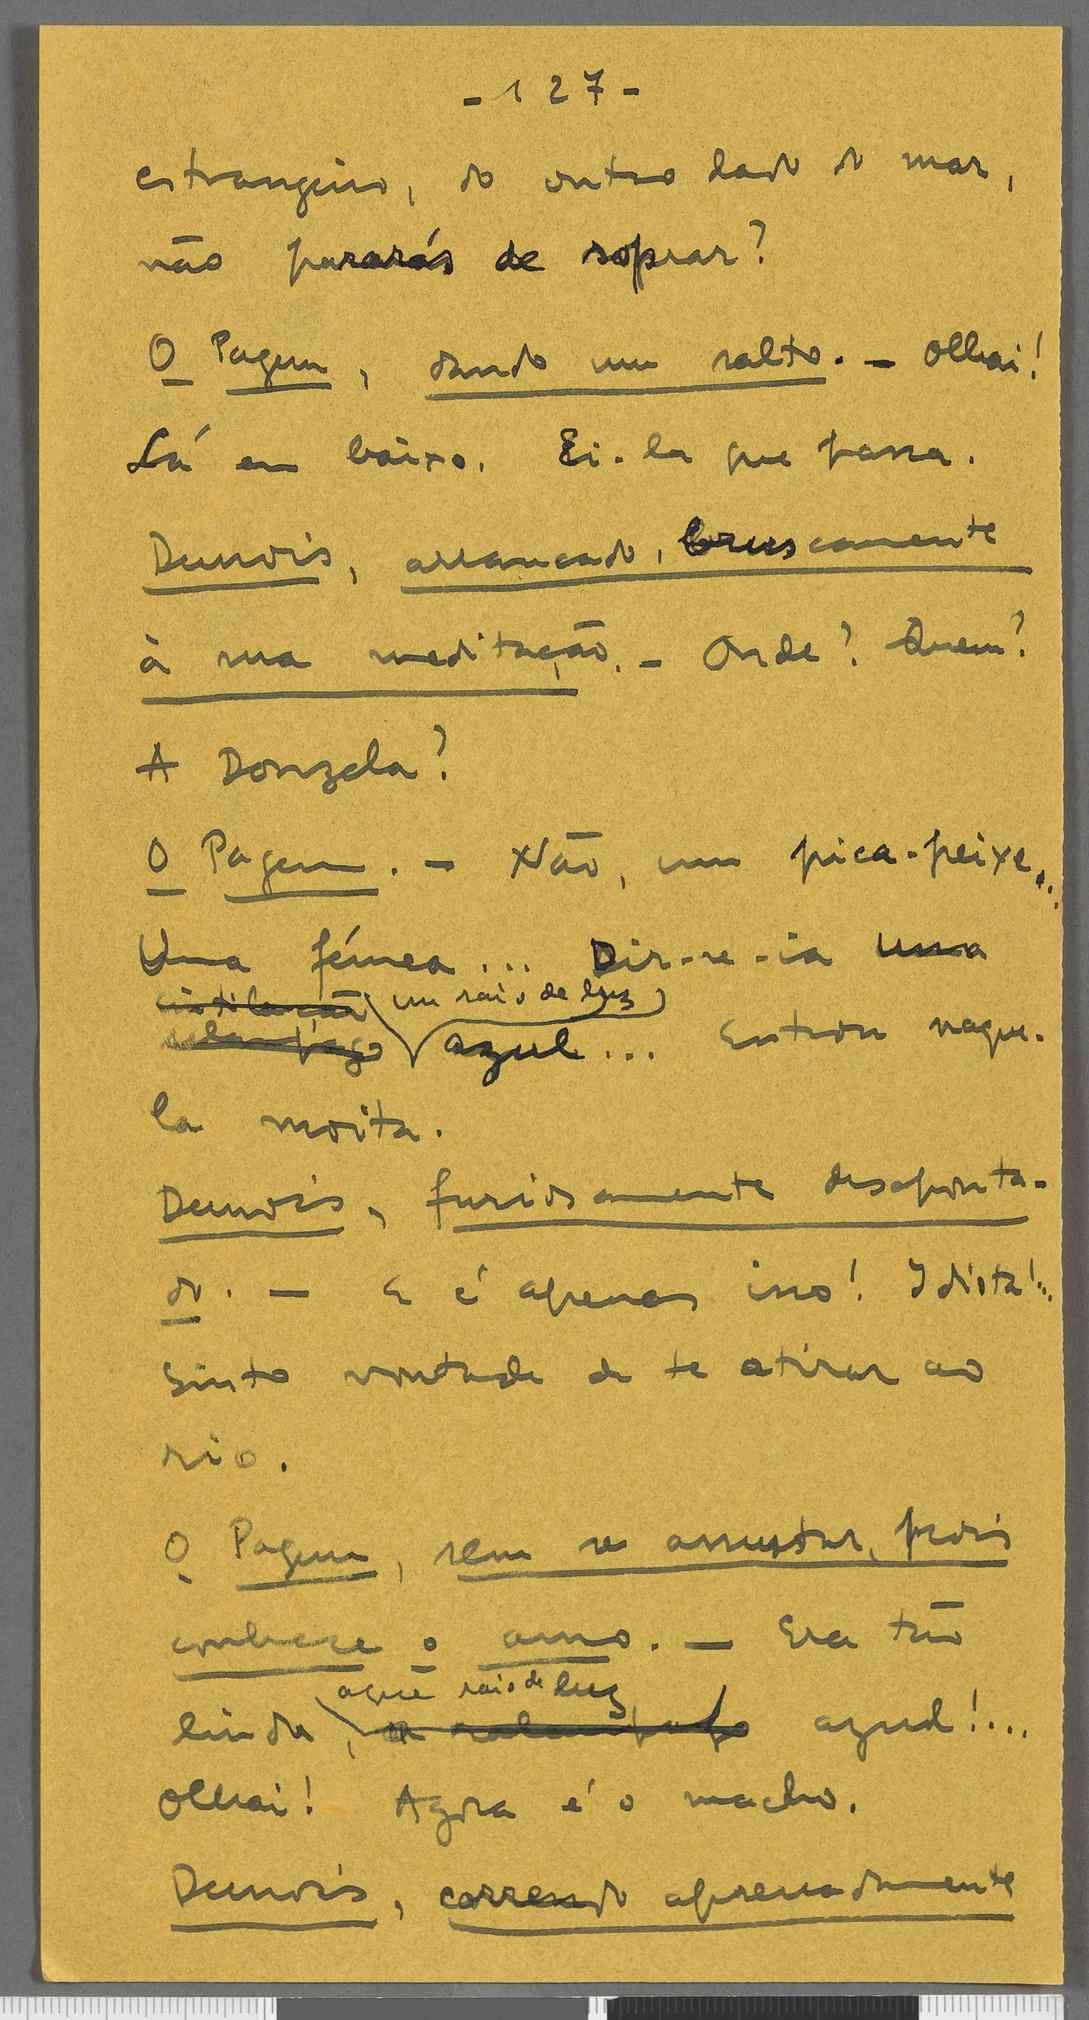 - 127 -
estrangeiro, do outro lado do mar,
não pararás de soprar?
O Pagem, dando um salto. - Olhai!
Lá em baixo. Ei-la que passa.
Dunois, arrancado, bruscamente
à sua meditação. - Onde? Quem?
A Donzela?
O Pagem. - Não, um pica-peixe...
Uma fémea... Dir-se-ia uma
cintilação um raio de luz
relampago azul... Entrou naque-
la moita.
Dunois, furiosamente desaponta-
do. - E é apenas isso! Idiota!...
Sinto vontade de te atirar ao
rio.
O Pagem, sem se assustar, pois
conhece o amo. - Era tão
aquele raio de luz
linda, o relampago azul!...
Olhai! Agora é o macho.
Dunois, correndo apressadamente